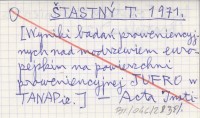 ŠTASTNÝ T. 1971.
[Wyniki badań proweniencyj-
nych nad modrzewiem euro-
pejskim na powierzchni
proweniencyjnej IUFRO w
TANAPie.] — Acta Insti